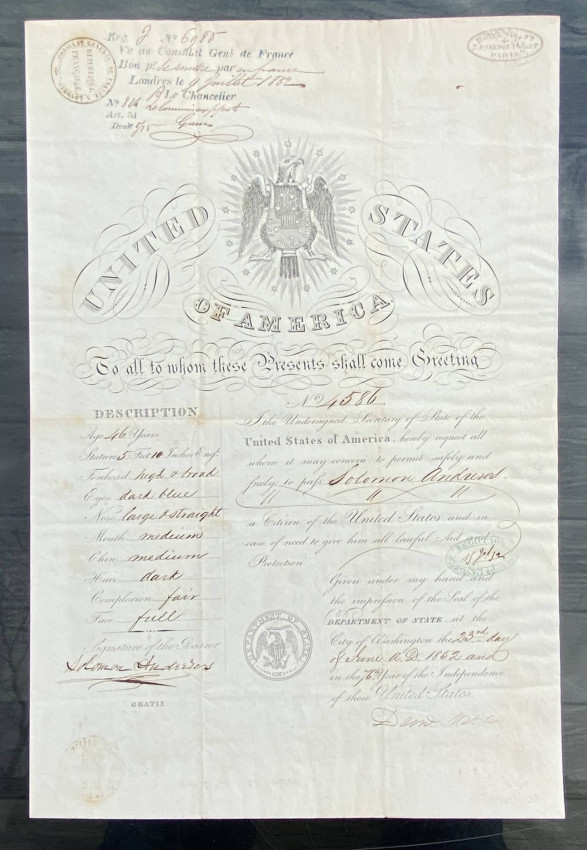 Reg. J No 6985
Vu au Consulat Genl de France
Bon pr. se rendre par en france
Londres le 9 Juillet 1852
Le Chancelier
No 814
Art. 51
Droit
CONSULAT GENERAL DE FRANCE A LONDRES
REPUBLIQUE FRANÇAISE
PARIS
UNITED STATES
OF AMERICA
To all to whom these Presents shall come Greeting
No 4586
DESCRIPTION
Age 46 Years
Stature 5 Feet 10 Inches Eng.
Forehead high & broad
Eyes dark blue
Nose large & straight
Mouth medium
Chin medium
Hair dark
Complexion fair
Face full
Signature of the Bearer
Solomon Andrews
GRATIS
I the Undersigned Secretary of State of the
United States of America, hereby request all
whom it may concern to permit safely and
freely to pass Solomon Andrews
a Citizen of the United States and in
case of need to give him all lawful Aid and
Protection
Given under my hand and
the impression of the Seal of the
DEPARTMENT OF STATE at the
City of Washington the 23rd day
of June A.D. 1852 and
in the 76th Year of the Independence
of these United States.
DEPARTMENT OF STATE
Danl Webster